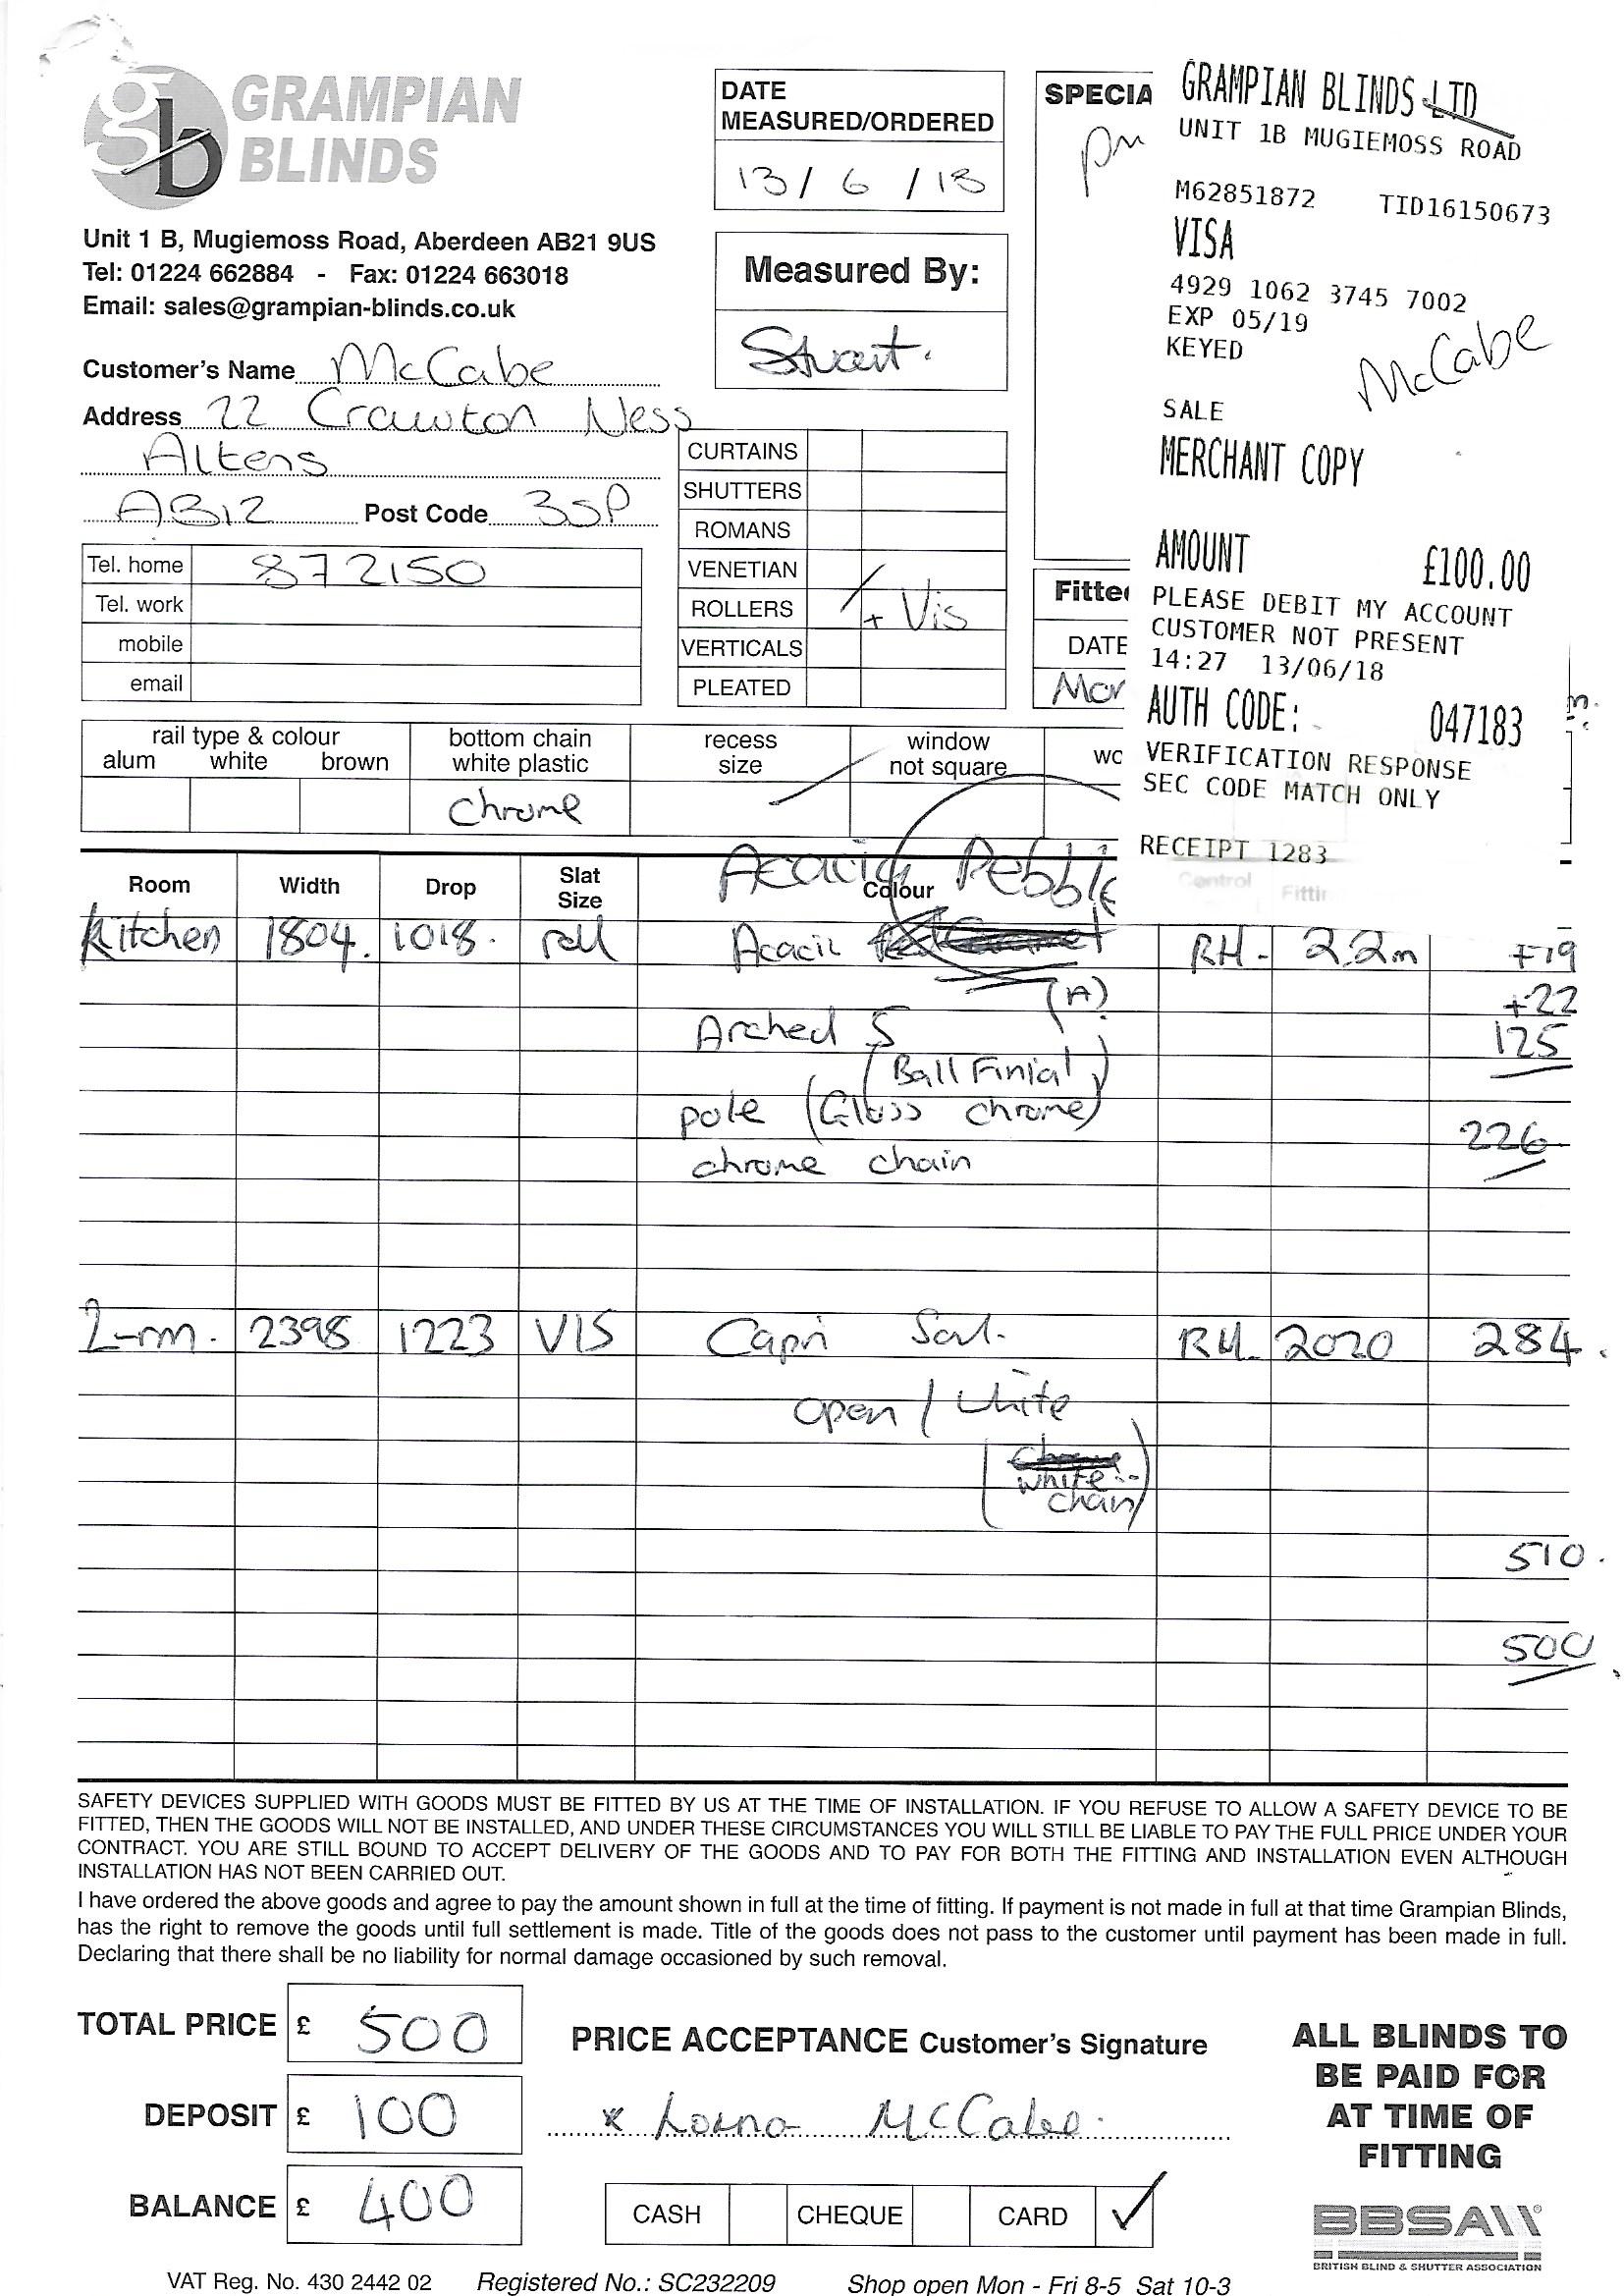 GRAMPIAN
BLINDS
Unit 1 B, Mugiemoss Road, Aberdeen AB21 9US
Tel: 01224 662884 - Fax: 01224 663018
Email: sales@grampian-blinds.co.uk
Customer's Name McCabe
Address 22 Crawton Ness
Altens
AB12 Post Code 3SP
Tel. home 872150
Tel. work
mobile
email
DATE
MEASURED/ORDERED
13/6/18
Measured By:
Stuart.
CURTAINS
SHUTTERS
ROMANS
VENETIAN
ROLLERS / + Vis
VERTICALS
PLEATED
SPECIA
pm
Fitte
DATE
Mor
GRAMPIAN BLINDS LTD
UNIT 1B MUGIEMOSS ROAD
M62851872 TID16150673
VISA
4929 1062 3745 7002
EXP 05/19
KEYED
McCabe
SALE
MERCHANT COPY
AMOUNT £100.00
PLEASE DEBIT MY ACCOUNT
CUSTOMER NOT PRESENT
14:27 13/06/18
AUTH CODE: 047183
VERIFICATION RESPONSE
SEC CODE MATCH ONLY
RECEIPT 1283
rail type & colour
alum white brown
bottom chain
white plastic
recess
size
window
not square
wo
Chrome
Acacia Pebble
Room Width Drop Slat Size Colour Control Fittin
Kitchen 1804. 1018. roll Acacia RH- 2.2m +19
(A) +22
Arched 5 125
(Ball Finial)
pole (Gloss chrome) 226
chrome chain
L-rm. 2398 1223 VIS Capri RH 2020 284.
open / white
(white
chain)
510.
500
SAFETY DEVICES SUPPLIED WITH GOODS MUST BE FITTED BY US AT THE TIME OF INSTALLATION. IF YOU REFUSE TO ALLOW A SAFETY DEVICE TO BE
FITTED, THEN THE GOODS WILL NOT BE INSTALLED, AND UNDER THESE CIRCUMSTANCES YOU WILL STILL BE LIABLE TO PAY THE FULL PRICE UNDER YOUR
CONTRACT. YOU ARE STILL BOUND TO ACCEPT DELIVERY OF THE GOODS AND TO PAY FOR BOTH THE FITTING AND INSTALLATION EVEN ALTHOUGH
INSTALLATION HAS NOT BEEN CARRIED OUT.
I have ordered the above goods and agree to pay the amount shown in full at the time of fitting. If payment is not made in full at that time Grampian Blinds,
has the right to remove the goods until full settlement is made. Title of the goods does not pass to the customer until payment has been made in full.
Declaring that there shall be no liability for normal damage occasioned by such removal.
TOTAL PRICE £ 500
DEPOSIT £ 100
BALANCE £ 400
PRICE ACCEPTANCE Customer's Signature
x Lorna McCabe.
CASH CHEQUE CARD ✓
ALL BLINDS TO
BE PAID FOR
AT TIME OF
FITTING
BBSA
BRITISH BLIND & SHUTTER ASSOCIATION
VAT Reg. No. 430 2442 02 Registered No.: SC232209 Shop open Mon - Fri 8-5 Sat 10-3